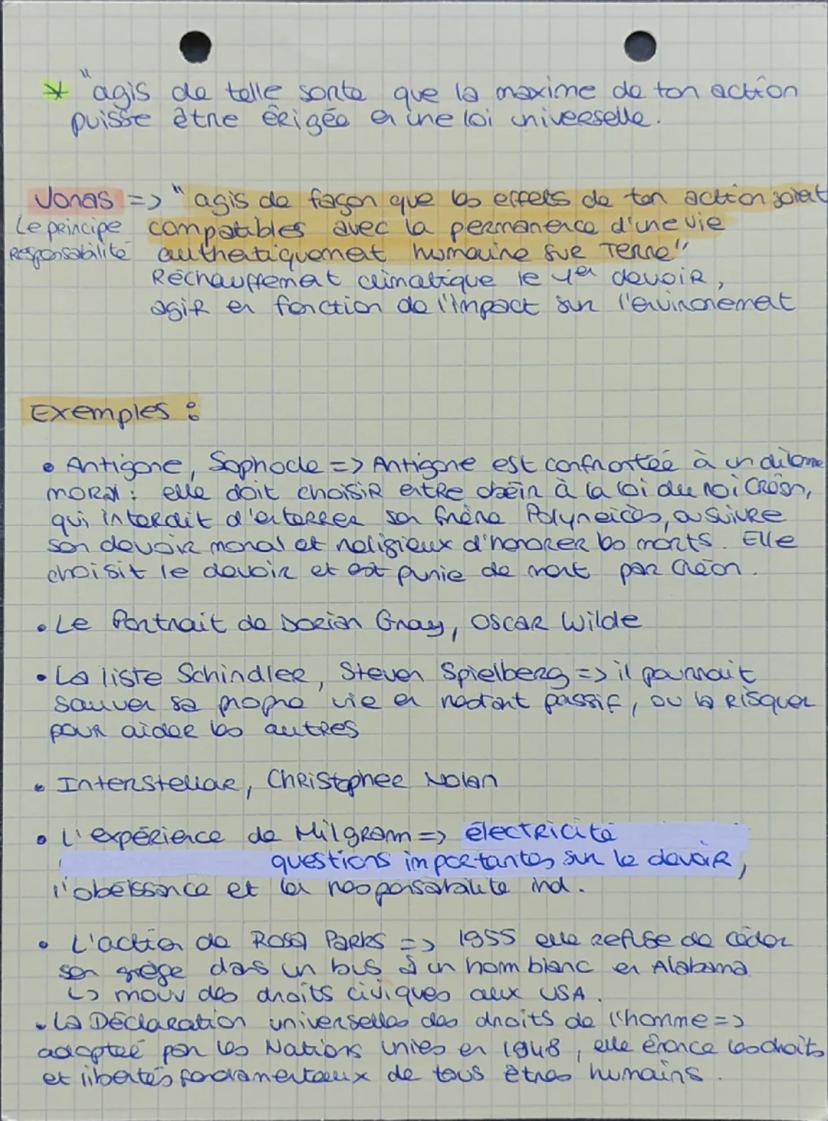 * "agis de telle sorte que la maxime de ton action
puisse être érigée en une loi universelle.
Jonas => "agis de façon que les effets de ton action soient
Le principe compatibles avec la permanence d'une vie
Responsabilité authentiquement humaine sur Terre"
Réchauffement climatique le 1er devoir,
agir en fonction de l'impact sur l'environement
Exemples :
• Antigone, Sophocle => Antigone est confrontée à un dilome
moral : elle doit choisir entre obéir à la loi du roi Créon,
qui interdit d'enterrer son frère Polyneices, ou suivre
son devoir moral et religieux d'honorer les morts. Elle
choisit le devoir et est punie de mort par Créon.
• Le Portrait de Dorian Gray, Oscar Wilde
• La liste Schindler, Steven Spielberg => il pourrait
sauver sa propre vie en restant passif, ou la risquer
pour aider les autres
• Interstellar, Christopher Nolan
• L'expérience de Milgram => électricité
questions importantes sur le devoir,
l'obéissance et la responsabilité ind.
• L'action de Rosa Parks => 1955 elle refuse de céder
son siège dans un bus à un hom blanc en Alabama
↳ mouv des droits civiques aux USA.
• La Déclaration universelles des droits de l'homme =>
adoptée par les Nations Unies en 1948, elle énonce les droits
et libertés fondamentaux de tous êtres humains.